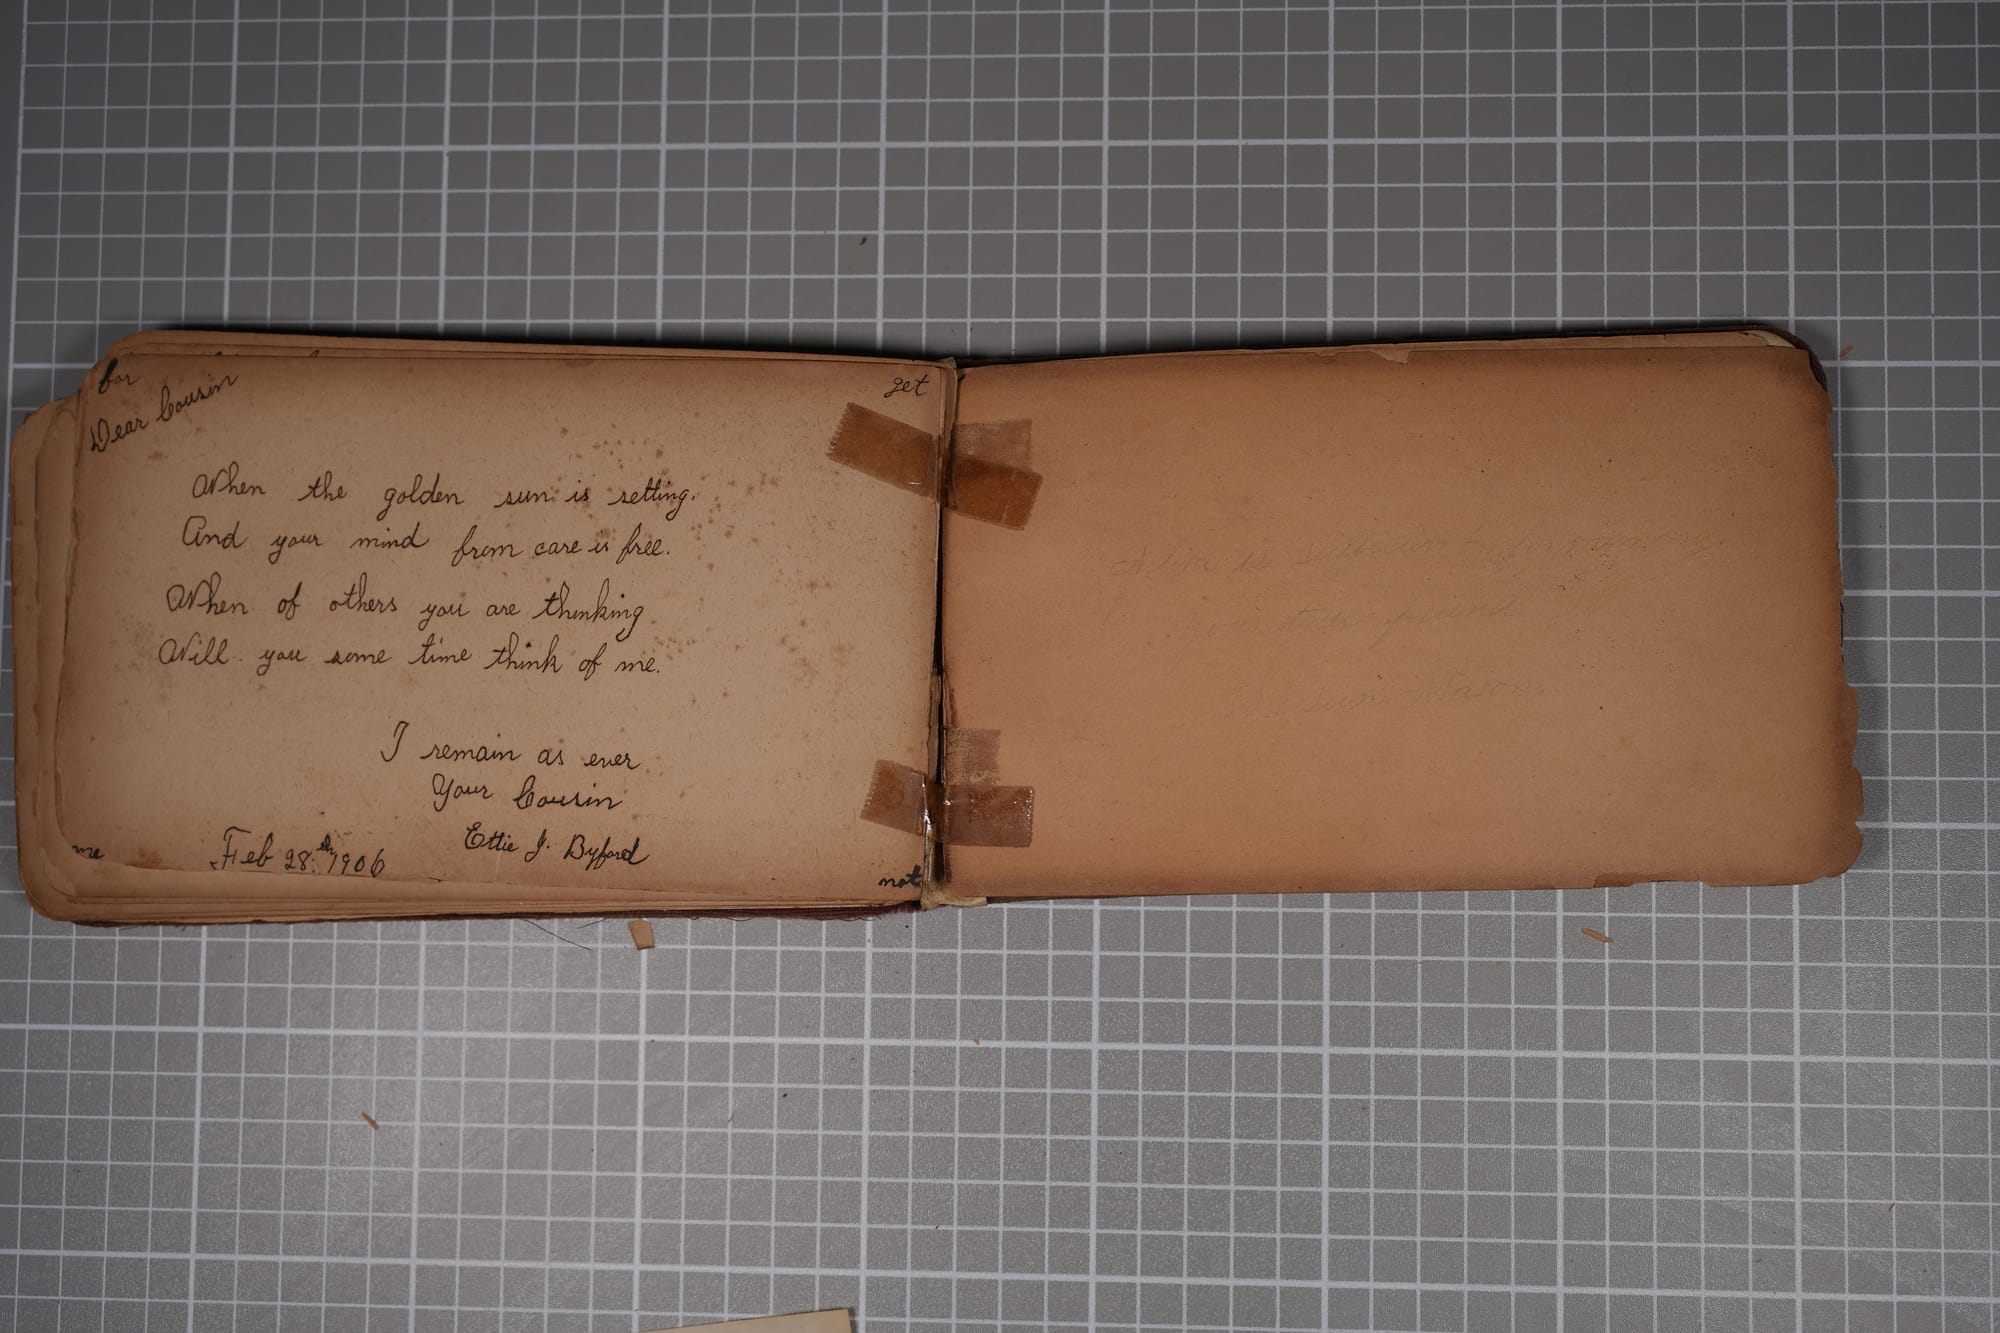 for
get
Dear Cousin
When the golden sun is setting.
And your mind from care is free.
When of others you are thinking
Will you some time think of me.
I remain as ever
Your Cousin
Ettie J. Byford
Feb 28th, 1906
me
not
Mason